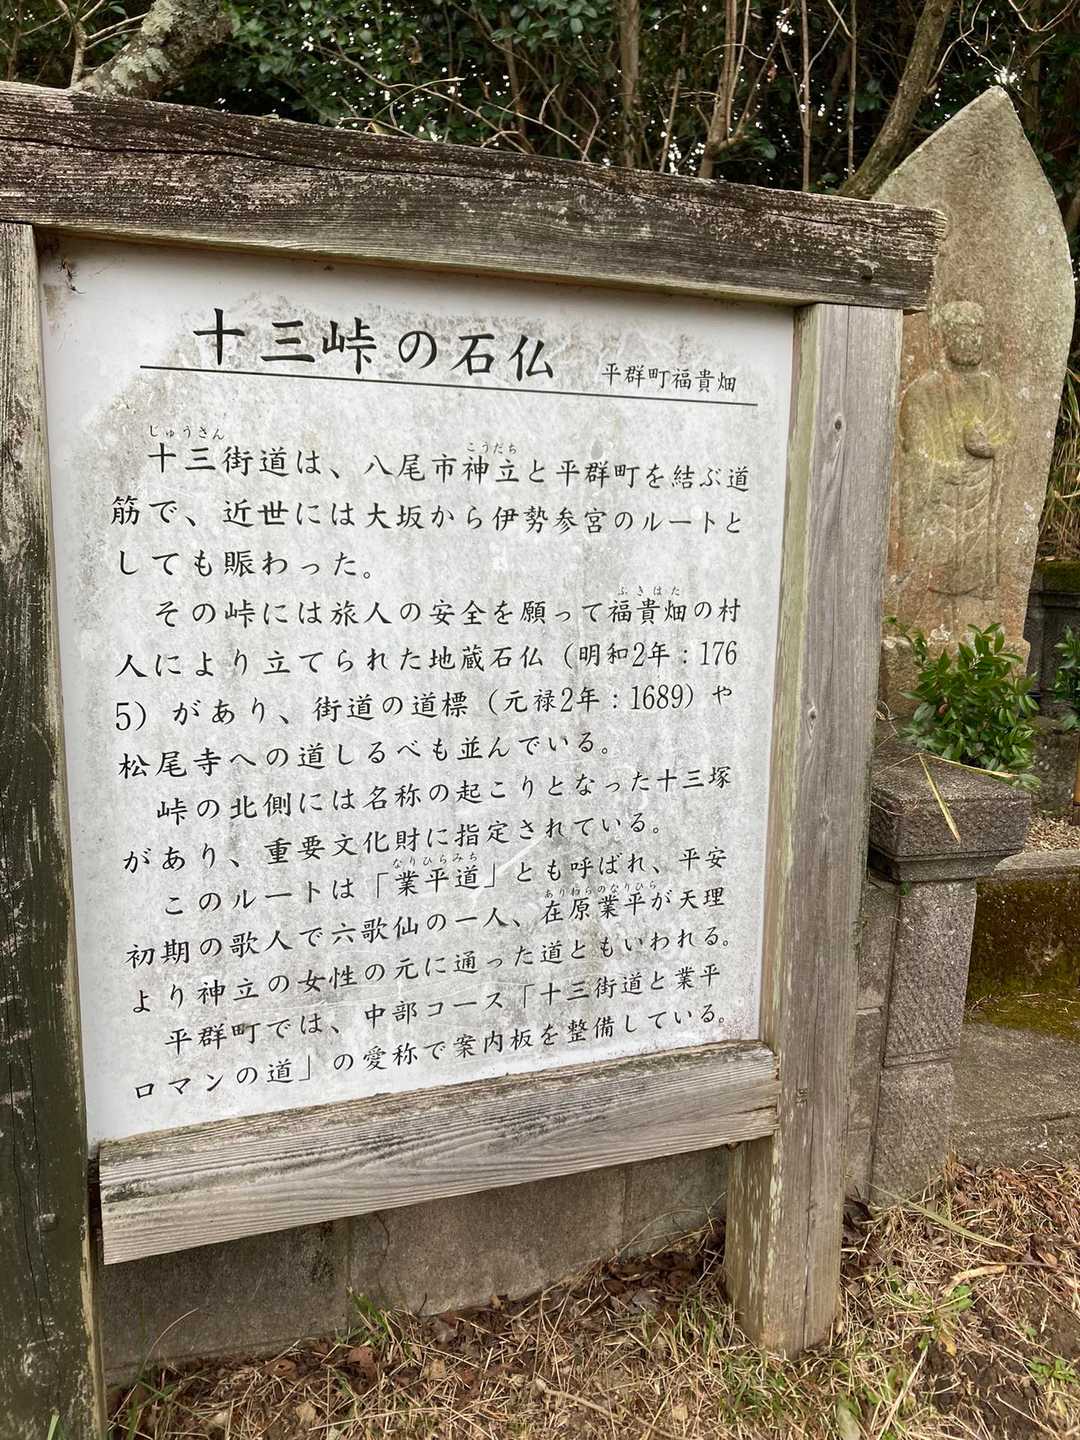 十三峠の石仏 平群町福貴畑
じゅうさん こうだち
十三街道は、八尾市神立と平群町を結ぶ道
筋で、近世には大坂から伊勢参宮のルートと
しても賑わった。
ふきはた
その峠には旅人の安全を願って福貴畑の村
人により立てられた地蔵石仏（明和2年：176
5）があり、街道の道標（元禄2年：1689）や
松尾寺への道しるべも並んでいる。
峠の北側には名称の起こりとなった十三塚
があり、重要文化財に指定されている。
なりひらみち
このルートは「業平道」とも呼ばれ、平安
ありわらのなりひら
初期の歌人で六歌仙の一人、在原業平が天理
より神立の女性の元に通った道ともいわれる。
平群町では、中部コース「十三街道と業平
ロマンの道」の愛称で案内板を整備している。